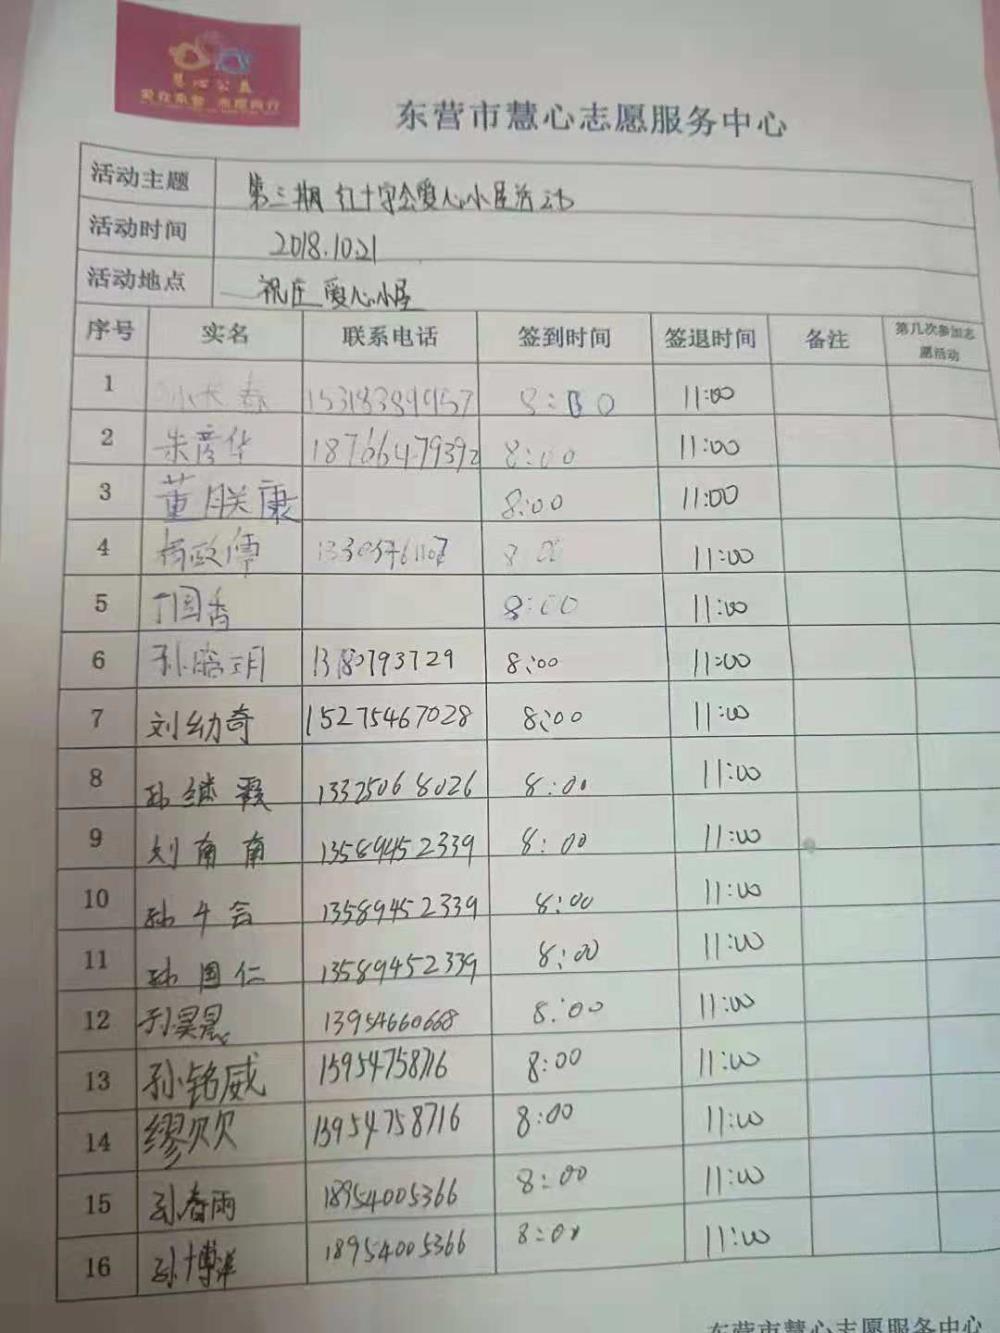 慧心公益
爱在东营 志愿同行
东营市慧心志愿服务中心
活动主题 第三期 红十字会爱心小屋活动
活动时间 2018.10.21
活动地点 祝庄 爱心小屋
序号 实名 联系电话 签到时间 签退时间 备注 第几次参加志愿活动
1 15318389957 8:00 11:00
2 朱彦华 18766479392 8:00 11:00
3 董朕康 8:00 11:00
4 8:00 11:00
5 丁国香 8:00 11:00
6 8:00 11:00
7 刘幼奇 15275467028 8:00 11:00
8 孙继霞 13325068026 8:00 11:00
9 刘南南 13589452339 8:00 11:00
10 孙牛会 13589452339 8:00 11:00
11 孙国仁 13589452339 8:00 11:00
12 孙昊晨 13954660668 8:00 11:00
13 孙铭威 15954758716 8:00 11:00
14 缪欠欠 15954758716 8:00 11:00
15 孙春雨 18954005366 8:00 11:00
16 孙博洋 18954005366 8:00 11:00
东营市慧心志愿服务中心